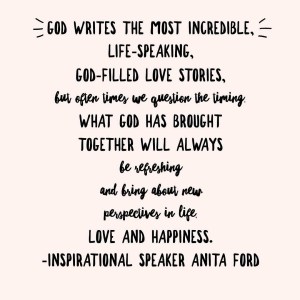 GOD WRITES THE MOST INCREDIBLE,
LIFE-SPEAKING,
GOD-FILLED LOVE STORIES,
but often times we question the timing.
WHAT GOD HAS BROUGHT
TOGETHER WILL ALWAYS
be refreshing
and bring about new
perspectives in life,
LOVE AND HAPPINESS.
-INSPIRATIONAL SPEAKER ANITA FORD